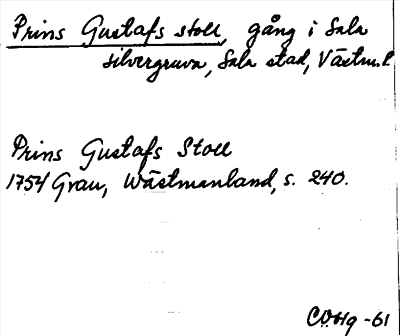 Prins Gustafs stoll, gång i Sala
silvergruva, Sala stad, Västm.l
Prins Gustafs Stoll
1754 Grau, Wästmanland, s. 240.
-61